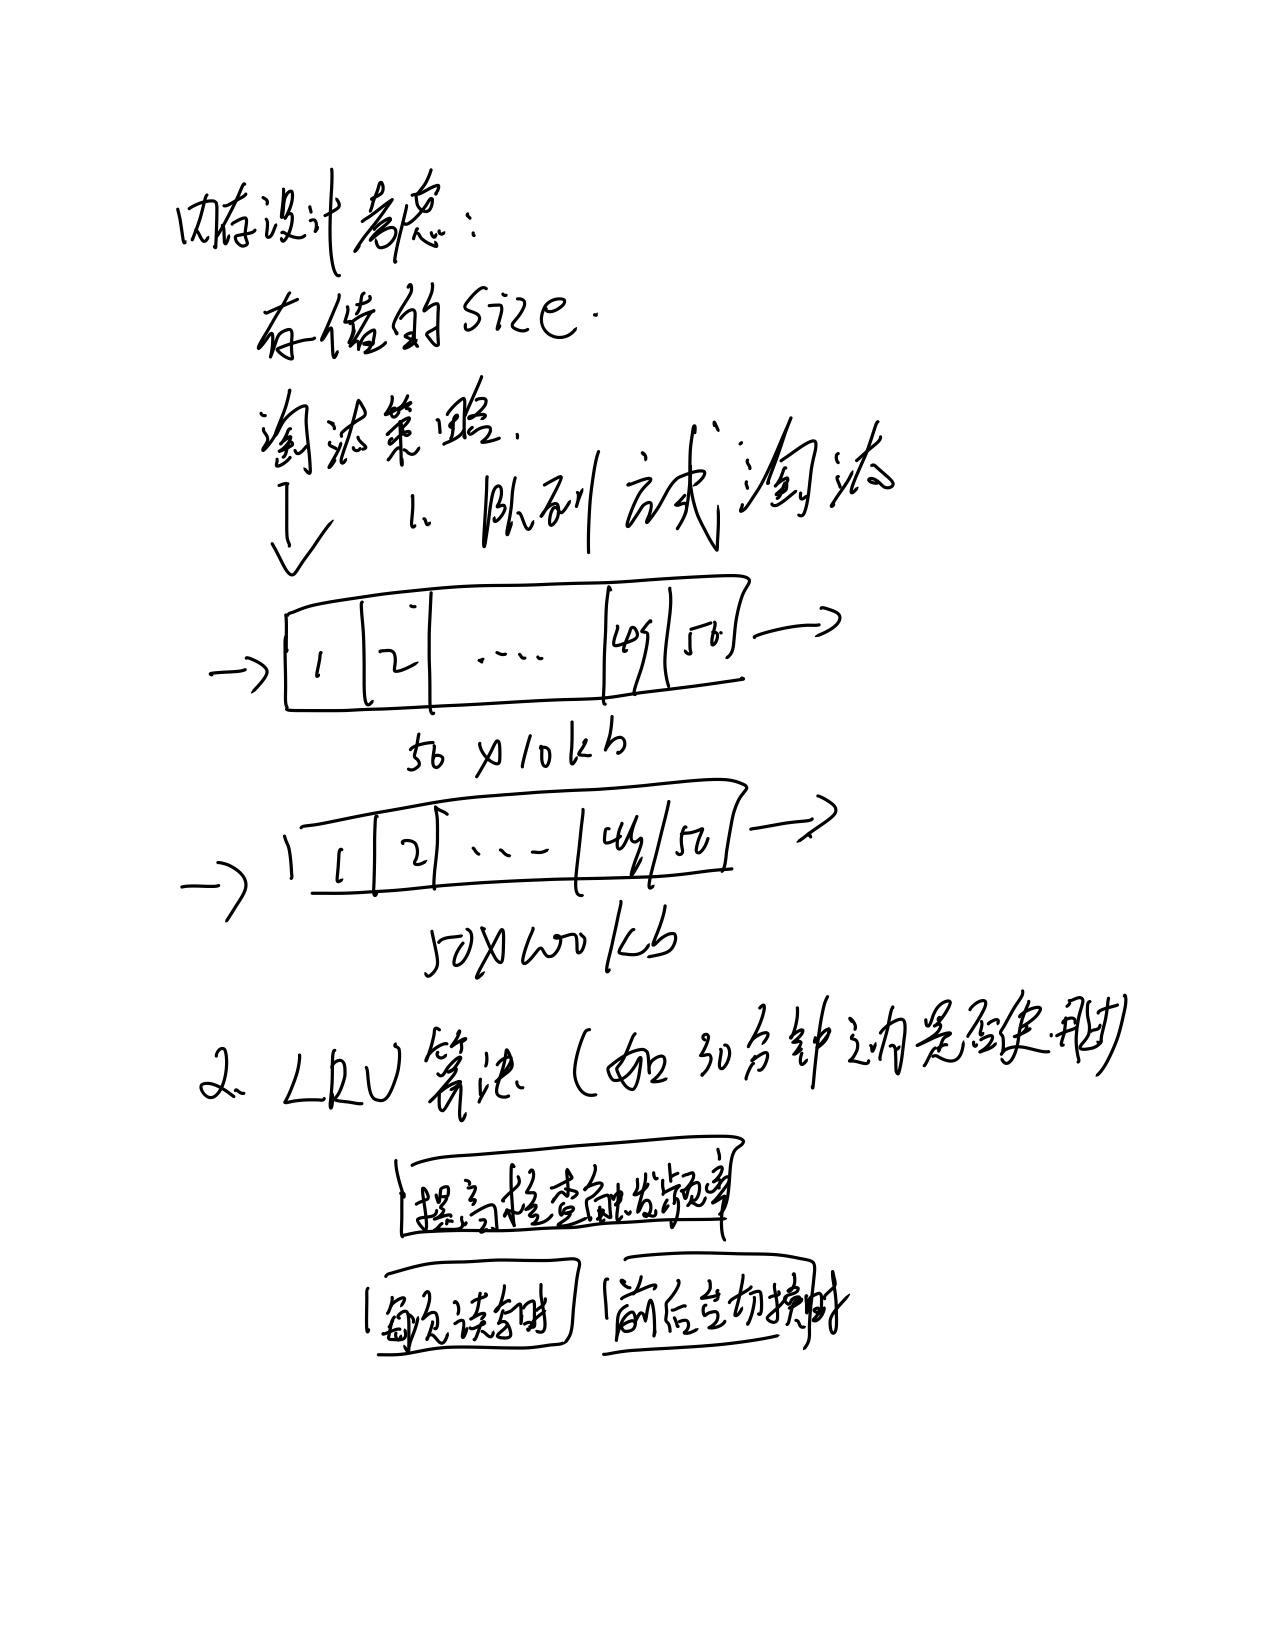 内存设计考虑:
存储的size.
淘汰策略.
1. 队列方式淘汰
1 2 .... 49 50
50 x 10kb
1 2 ... 49 50
50 x 100kb
2. LRU算法 (如30分钟之内是否使用过)
提高检查触发频率
每次读写时 前后台切换时